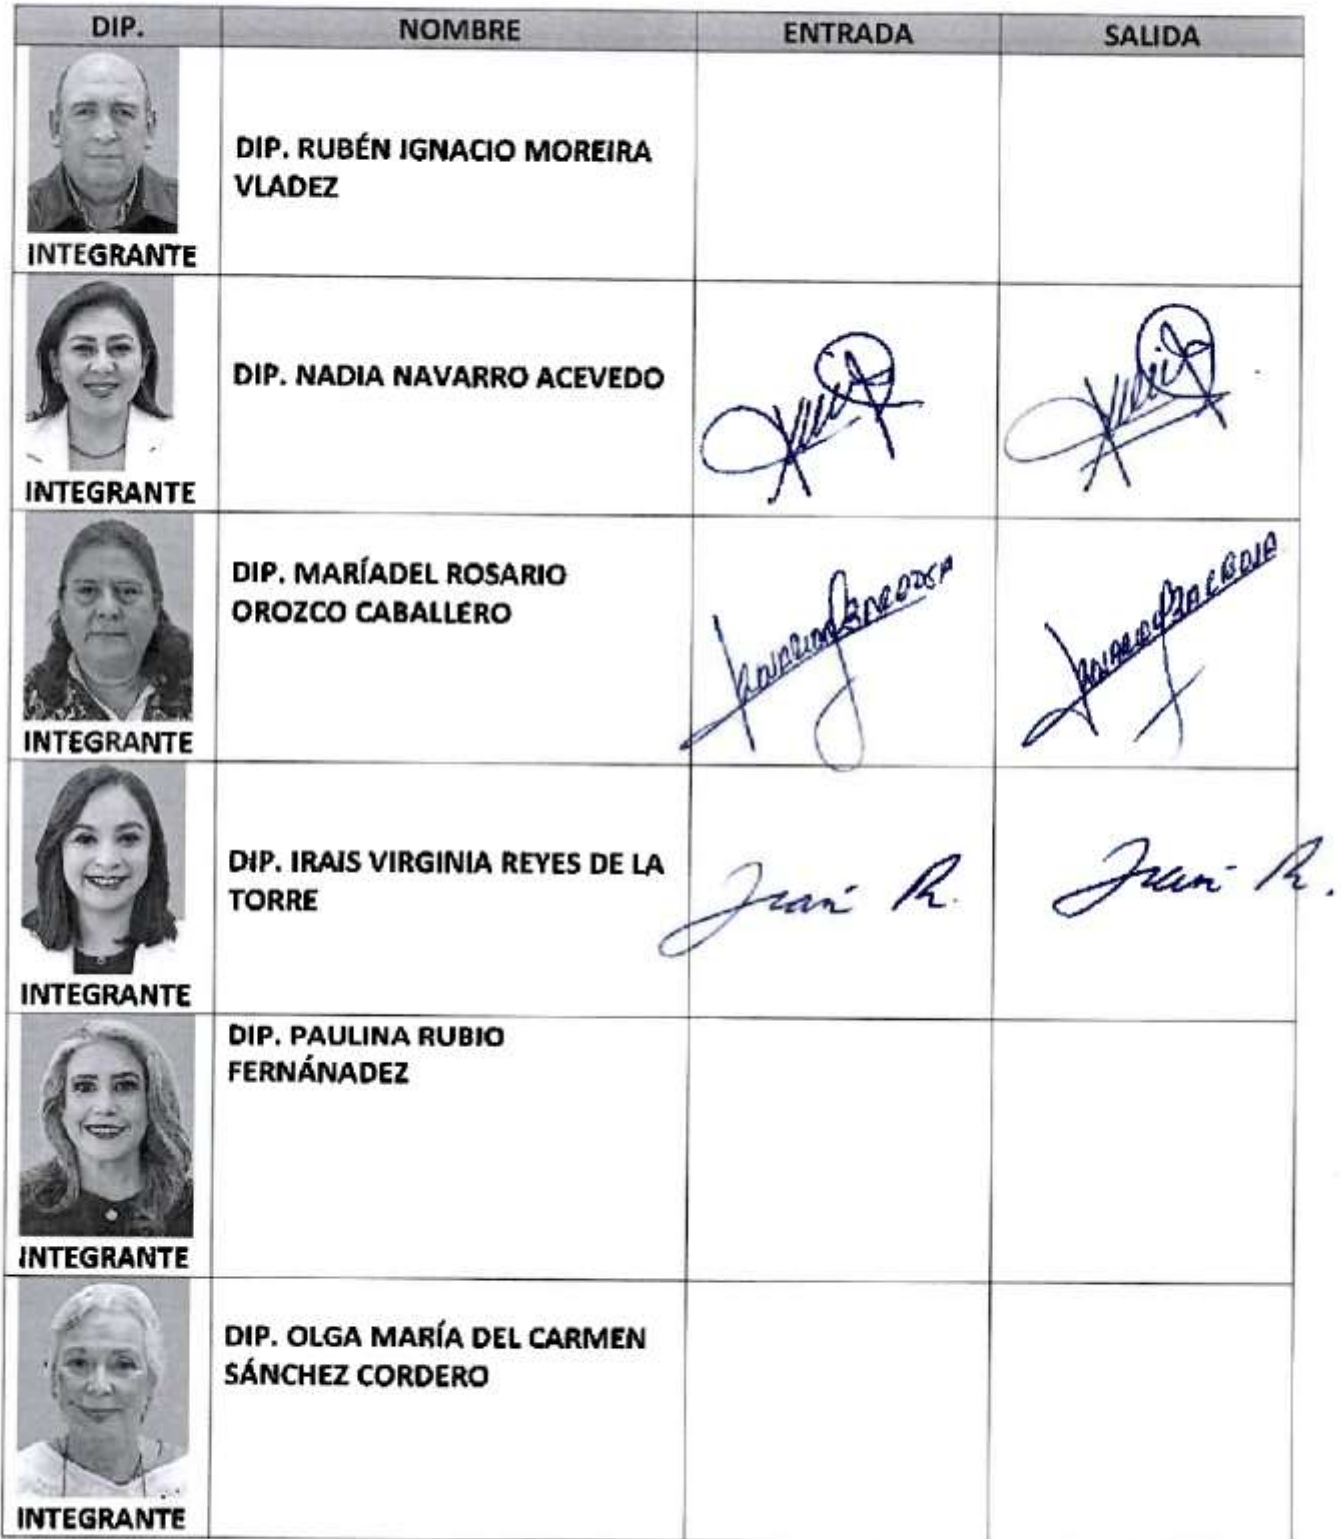 DIP. NOMBRE ENTRADA SALIDA
DIP. RUBÉN IGNACIO MOREIRA
VLADEZ
INTEGRANTE
DIP. NADIA NAVARRO ACEVEDO
INTEGRANTE
DIP. MARÍADEL ROSARIO
OROZCO CABALLERO
INTEGRANTE
DIP. IRAIS VIRGINIA REYES DE LA
TORRE
INTEGRANTE
DIP. PAULINA RUBIO
FERNÁNADEZ
INTEGRANTE
DIP. OLGA MARÍA DEL CARMEN
SÁNCHEZ CORDERO
INTEGRANTE